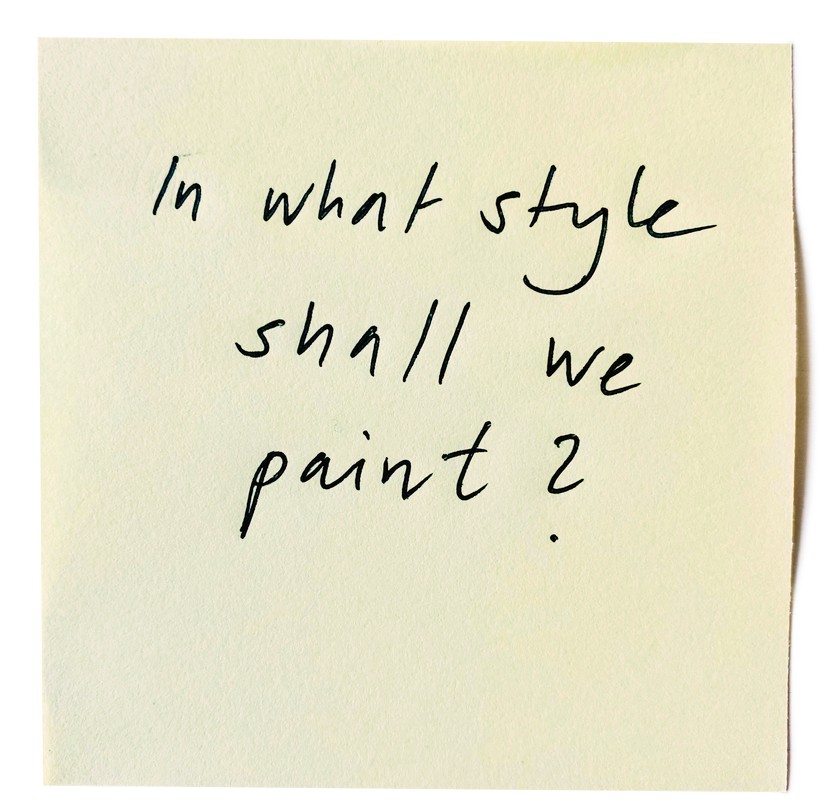 In what style
shall we
paint?